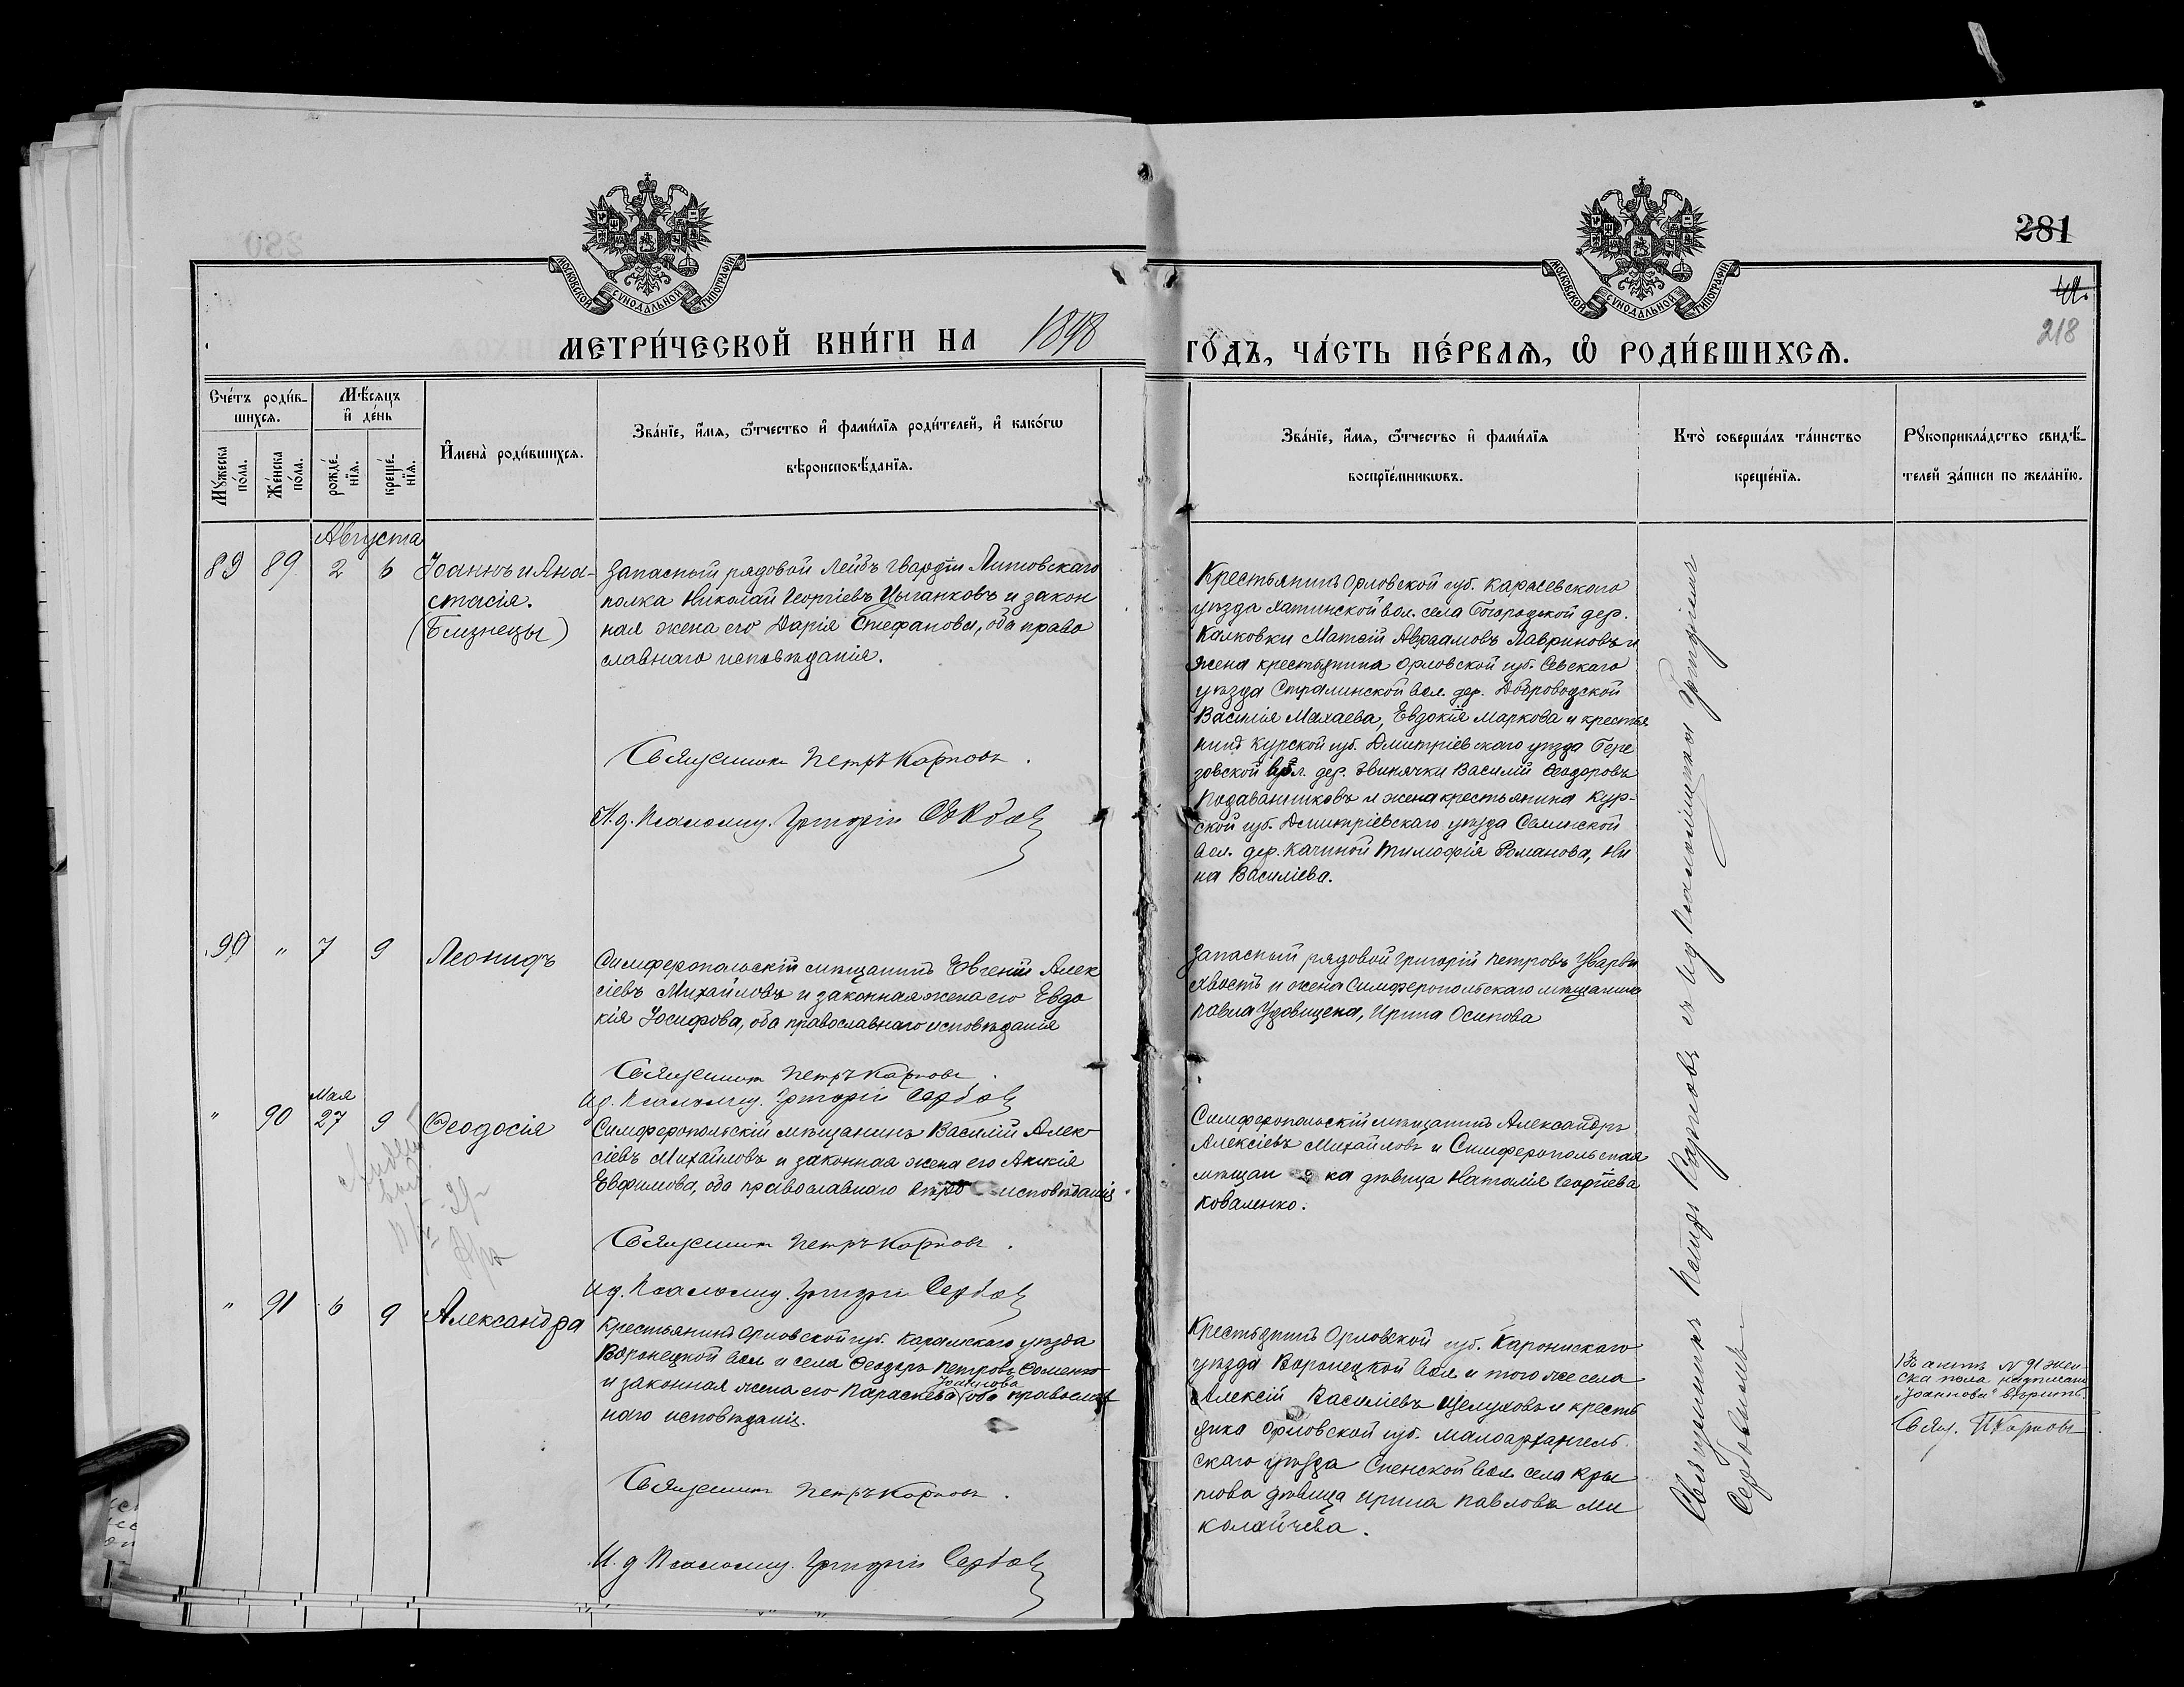 281
218
МОСКОВСКОЙ СѴНОДАЛЬНОЙ ТИПОГРАФІИ
МОСКОВСКОЙ СѴНОДАЛЬНОЙ ТИПОГРАФІИ
МЕТРИ́ЧЕСКОЙ КНИ́ГИ НА 1898
ГО́ДЪ, ЧА́СТЬ ПЕ́РВАѦ, Ѽ РОДИ́ВШИХСѦ.
Сче́тъ роди́в-
шихсѧ.
Мѣ́сѧцъ
и҆ де́нь
Мꙋ́жеска
по́ла.
Же́нска
по́ла.
рожде́-
нїѧ.
креще́-
нїѧ.
И҆мена̀ роди́вшихсѧ.
Зва́нїе, и҆́мѧ, ѻ҆́тчество и҆ фами́лїѧ роди́телей, и҆ како́гѡ
вѣроисповѣ́данїѧ.
Зва́нїе, и҆́мѧ, ѻ҆́тчество и҆ фами́лїѧ
воспрїе́мникѡвъ.
Кто̀ соверша́лъ та́инство
креще́нїѧ.
Рꙋкоприкла́дство свидѣ́-
телей за́писи по жела́нїю.
Августа
89 89 2 6 Іоаннъ и Ана-
стасія.
(Близнецы)
Запасный рядовой Лейбъ гвардіи Литовскаго
полка Николай Георгіевъ Цыганковъ и закон
ная жена его Дарія Стефанова, оба право
славнаго исповѣданія.
Священникъ Петръ Карповъ.
И. д. Псаломщ. Григорій Сербовъ
Крестьянинъ Орловской губ. Карасевского
уѣзда Хатинской вол. села Богородской дер.
Калковки Матѳій Авраамовъ Лавриновъ и
жена крестьянина Орловской губ. Севскаго
уѣзда Стралинской вол. дер. Доброводской
Василія Махаева, Евдокія Маркова и крестья
нинъ Курской губ. Дмитріевскаго уѣзда Бере
зовской вол. дер. Звинячки Василій Ѳеодоровъ
Подаванниковъ и жена крестьянина Кур-
ской губ. Дмитріевскаго уѣзда Селинской
вол. дер. Качиной Тимофія Романова, Ни
на Василіева.
90 " 7 9 Леонидъ
Симферопольскій мѣщанинъ Евгеній Алек
сіевъ Михайловъ и законная жена его Евдо
кія Іосифова, оба православнаго исповѣданія
Священникъ Петръ Карповъ.
И. д. Псаломщ. Григорій Сербовъ
Запасный рядовой Григорій Петровъ Уварви
хвостъ и жена Симферопольскаго мѣщанина
Павла Удовищена, Ирина Осипова
Мая
" 90 27 9 Ѳеодосія
Симферопольскій мѣщанинъ Василій Алек-
сіевъ Михайловъ и законная жена его Анжія
Евфимова, оба православнаго исповѣданія.
Священникъ Петръ Карповъ.
И. д. Псаломщ. Григорій Сербовъ
Симферопольскій мѣщанинъ Александръ
Алексіевъ Михайловъ и Симферопольская
мѣщан ка дѣвица Наталія Георгіева
Коваленко.
" 91 6 9 Александра
Крестьянинъ Орловской губ. Карачевскаго уѣзда
Воронецкой вол. и села Ѳеодоръ Петровъ Ѳоменко
Іоаннова
и законная жена его Параскева оба православ
наго исповѣданія.
Священникъ Петръ Карповъ.
И. д. Псаломщ. Григорій Сербовъ
Крестьянинъ Орловской губ. Карониского
уѣзда Воронецкой вол. и того же села
Алексій Василіевъ Щелуховъ и кресть
янка Орловской губ. Малоархангель-
скаго уѣзда Сненской вол. села Кры
това дѣвица Ирина Павлова Ми
колайчева.
Священникъ Петръ Карповъ съ ид Псаломщикомъ Григоріемъ
Сербовымъ
Въ актѣ № 91 жен-
ска пола надписано
"Іоаннова" вѣрить.
Свящ. П. Карповъ